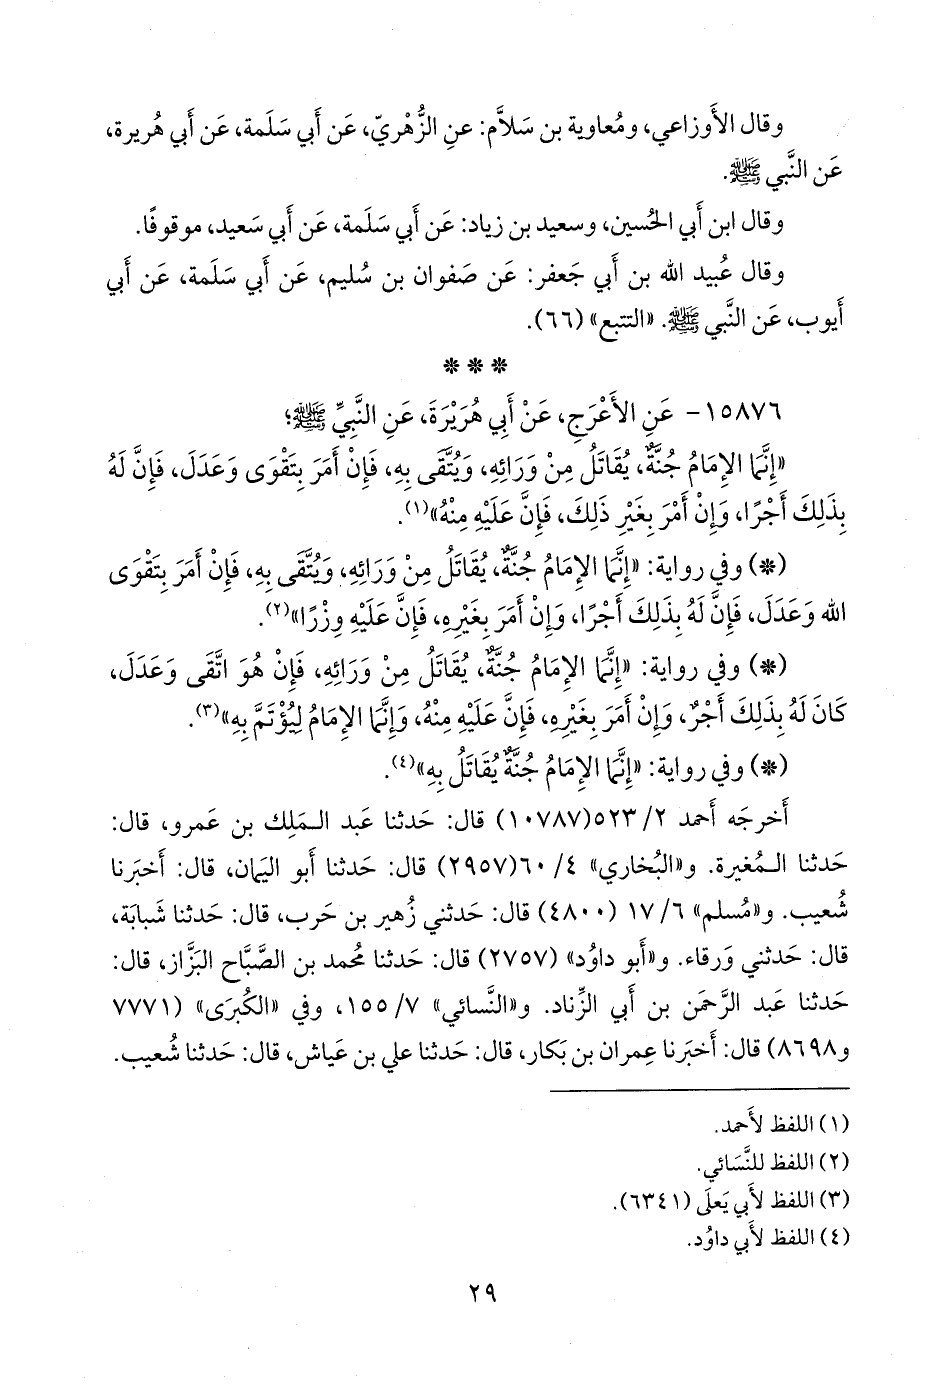 وقال الأَوزاعي، ومُعاوية بن سَلاَّم: عنِ الزُّهْريّ، عَن أَبي سَلَمة، عَن أَبي هُريرة،
عَن النَّبي ﷺ.
وقال ابن أَبي الحُسين، وسعيد بن زياد: عَن أَبي سَلَمة، عَن أَبي سَعيد، موقوفًا.
وقال عُبيد الله بن أَبي جَعفر: عَن صَفوان بن سُليم، عَن أَبي سَلَمة، عَن أَبي
أَيوب، عَن النَّبي ﷺ. «التتبع» (٦٦).
* * *
١٥٨٧٦- عَنِ الأَعْرَجِ، عَنْ أَبِي هُرَيْرَةَ، عَنِ النَّبِيِّ ﷺ؛
«إِنَّمَا الإِمَامُ جُنَّةٌ، يُقَاتَلُ مِنْ وَرَائِهِ، وَيُتَّقَى بِهِ، فَإِنْ أَمَرَ بِتَقْوَى وَعَدَلَ، فَإِنَّ لَهُ
بِذَلِكَ أَجْرًا، وَإِنْ أَمَرَ بِغَيْرِ ذَلِكَ، فَإِنَّ عَلَيْهِ مِنْهُ»(١).
(*) وفي رواية: «إِنَّمَا الإِمَامُ جُنَّةٌ، يُقَاتَلُ مِنْ وَرَائِهِ، وَيُتَّقَى بِهِ، فَإِنْ أَمَرَ بِتَقْوَى
الله وَعَدَلَ، فَإِنَّ لَهُ بِذَلِكَ أَجْرًا، وَإِنْ أَمَرَ بِغَيْرِهِ، فَإِنَّ عَلَيْهِ وِزْرًا»(٢).
(*) وفي رواية: «إِنَّمَا الإِمَامُ جُنَّةٌ، يُقَاتَلُ مِنْ وَرَائِهِ، فَإِنْ هُوَ اتَّقَى وَعَدَلَ،
كَانَ لَهُ بِذَلِكَ أَجْرٌ، وَإِنْ أَمَرَ بِغَيْرِهِ، فَإِنَّ عَلَيْهِ مِنْهُ، وَإِنَّمَا الإِمَامُ لِيُؤْتَمَّ بِهِ»(٣).
(*) وفي رواية: «إِنَّمَا الإِمَامُ جُنَّةٌ يُقَاتَلُ بِهِ»(٤).
أَخرجَه أَحمد ٢/٥٢٣(١٠٧٨٧) قال: حَدثنا عَبد الـمَلِك بن عَمرو، قال:
حَدثنا الـمُغيرة. و«البُخاري» ٤/٦٠(٢٩٥٧) قال: حَدثنا أَبو اليَمان، قال: أَخبَرنا
شُعيب. و«مُسلم» ٦/١٧ (٤٨٠٠) قال: حَدثني زُهير بن حَرب، قال: حَدثنا شَبابَة،
قال: حَدثني وَرقاء. و«أَبو داوُد» (٢٧٥٧) قال: حَدثنا مُحمد بن الصَّبَّاح البَزَّاز، قال:
حَدثنا عَبد الرَّحمَن بن أَبي الزِّناد. و«النَّسائي» ٧/١٥٥، وفي «الكُبرَى» (٧٧٧١
و٨٦٩٨) قال: أَخبَرنا عِمران بن بَكار، قال: حَدثنا علي بن عَياش، قال: حَدثنا شُعيب.
(١) اللفظ لأَحمد.
(٢) اللفظ للنَّسَائي.
(٣) اللفظ لأَبي يَعلَى (٦٣٤١).
(٤) اللفظ لأَبي داوُد.
٢٩